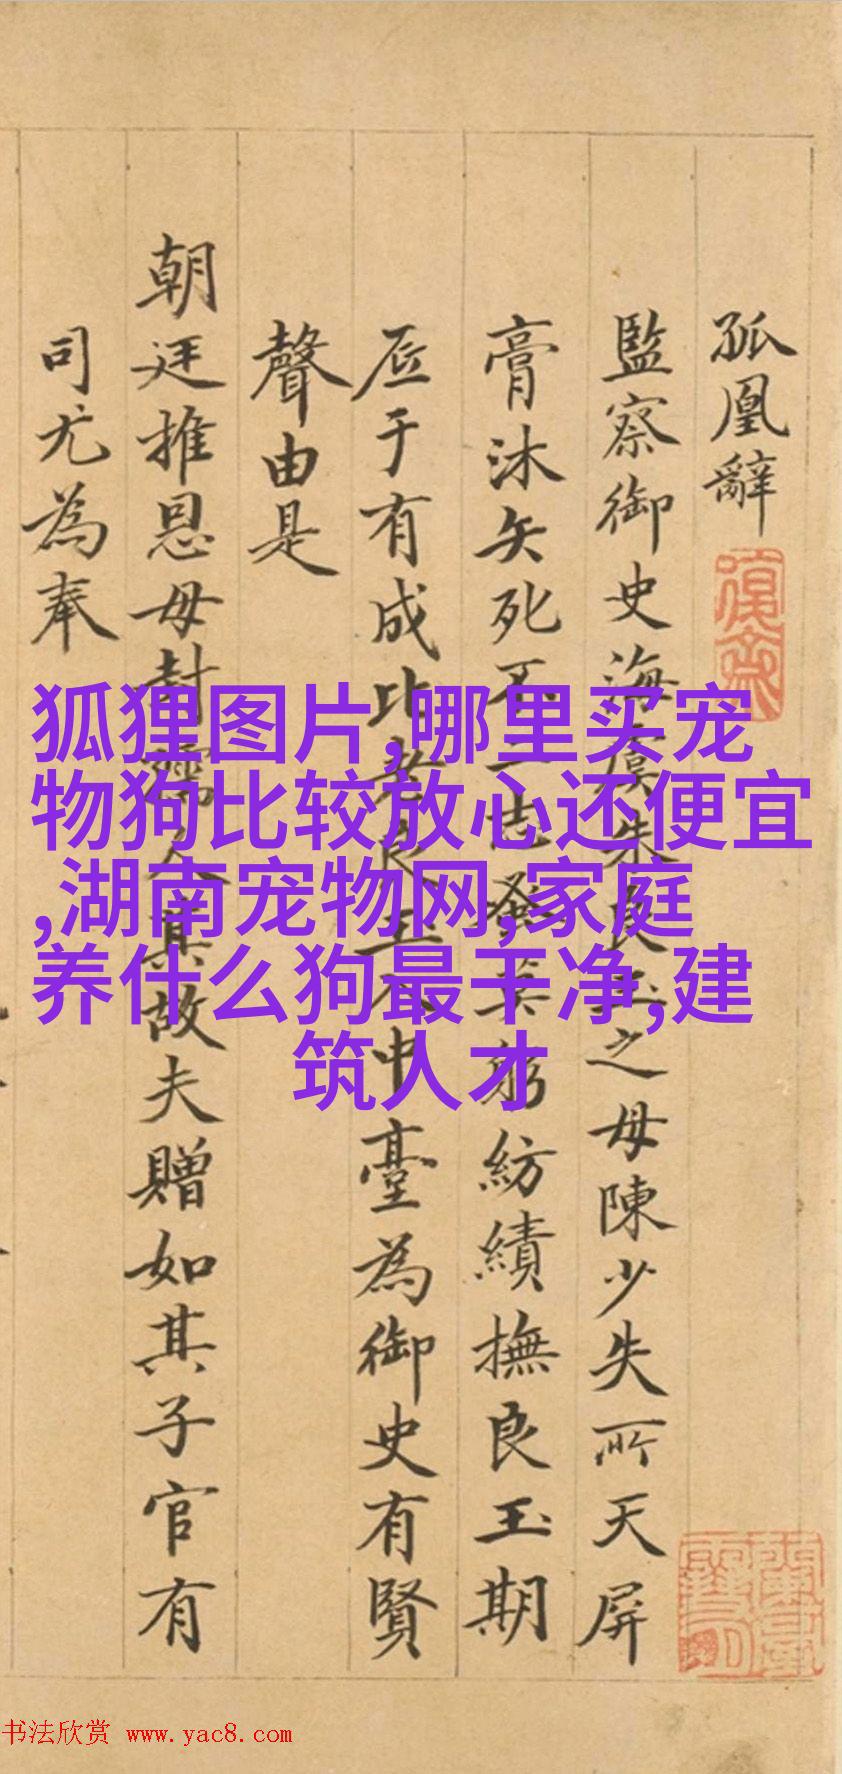 孤凰辭
監察御史海虞朱良玉之母陳少失所天屏
膏沐矢死不二志蚤莫躬紡績撫良玉期
厎于有成比者良玉入中臺為御史有賢
聲由是
朝廷推恩母封孺人其故夫贈如其子官有
司尤為奉
狐狸图片,哪里买宠
物狗比较放心还便宜
,湖南宠物网,家庭
养什么狗最干净,建
筑人才
书法欣赏 www.yac8.com